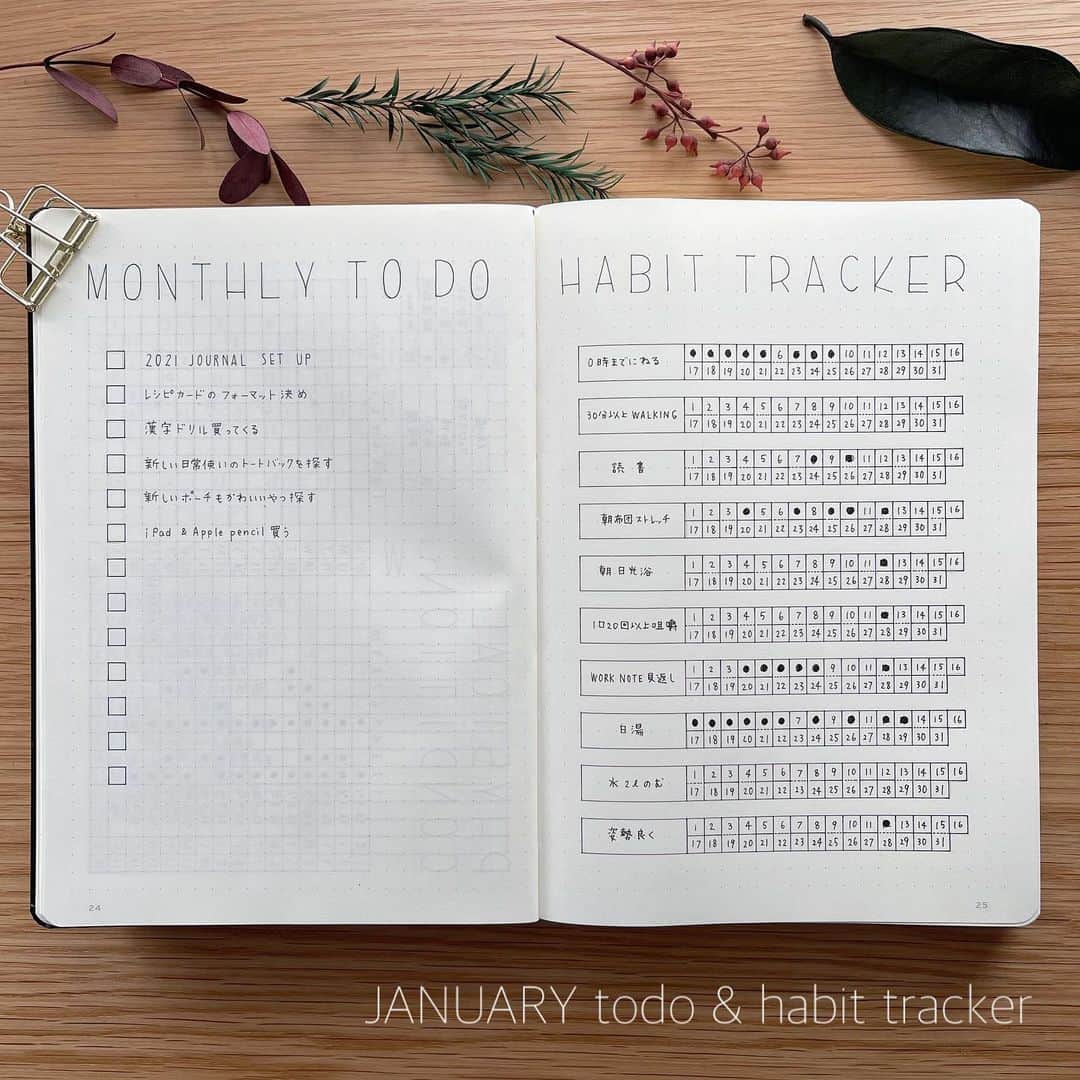 MONTHLY TO DO
2021 JOURNAL SET UP
レシピカードのフォーマット決め
漢字ドリル買ってくる
新しい日常使いのトートバックを探す
新しいポーチもかわいいやつ探す
iPad & Apple pencil買う
24
HABIT TRACKER
0時までにねる
6 10 11 12 13 14 15 16
17 18 19 20 21 22 23 24 25 26 27 28 29 30 31
30分以上WALKING
1 2 3 4 5 6 7 8 9 10 11 12 13 14 15 16
17 18 19 20 21 22 23 24 25 26 27 28 29 30 31
読書
1 2 3 4 5 6 7 9 11 12 13 14 15 16
17 18 19 20 21 22 23 24 25 26 27 28 29 30 31
朝布団ストレッチ
1 2 3 5 6 8 11 13 14 15 16
17 18 19 20 21 22 23 24 25 26 27 28 29 30 31
朝日光浴
1 2 3 4 5 6 7 8 9 10 11 13 14 15 16
17 18 19 20 21 22 23 24 25 26 27 28 29 30 31
1口20回以上咀嚼
1 2 3 4 5 6 7 8 9 10 11 13 14 15 16
17 18 19 20 21 22 23 24 25 26 27 28 29 30 31
WORK NOTE見返し
1 2 3 9 10 11 13 14 15 16
17 18 19 20 21 22 23 24 25 26 27 28 29 30 31
白湯
7 9 11 14 15 16
17 18 19 20 21 22 23 24 25 26 27 28 29 30 31
水2lのむ
1 2 3 4 5 6 7 8 9 10 11 12 13 14 15 16
17 18 19 20 21 22 23 24 25 26 27 28 29 30 31
姿勢良く
1 2 3 4 5 6 7 8 9 10 11 13 14 15 16
17 18 19 20 21 22 23 24 25 26 27 28 29 30 31
25
JANUARY todo & habit tracker